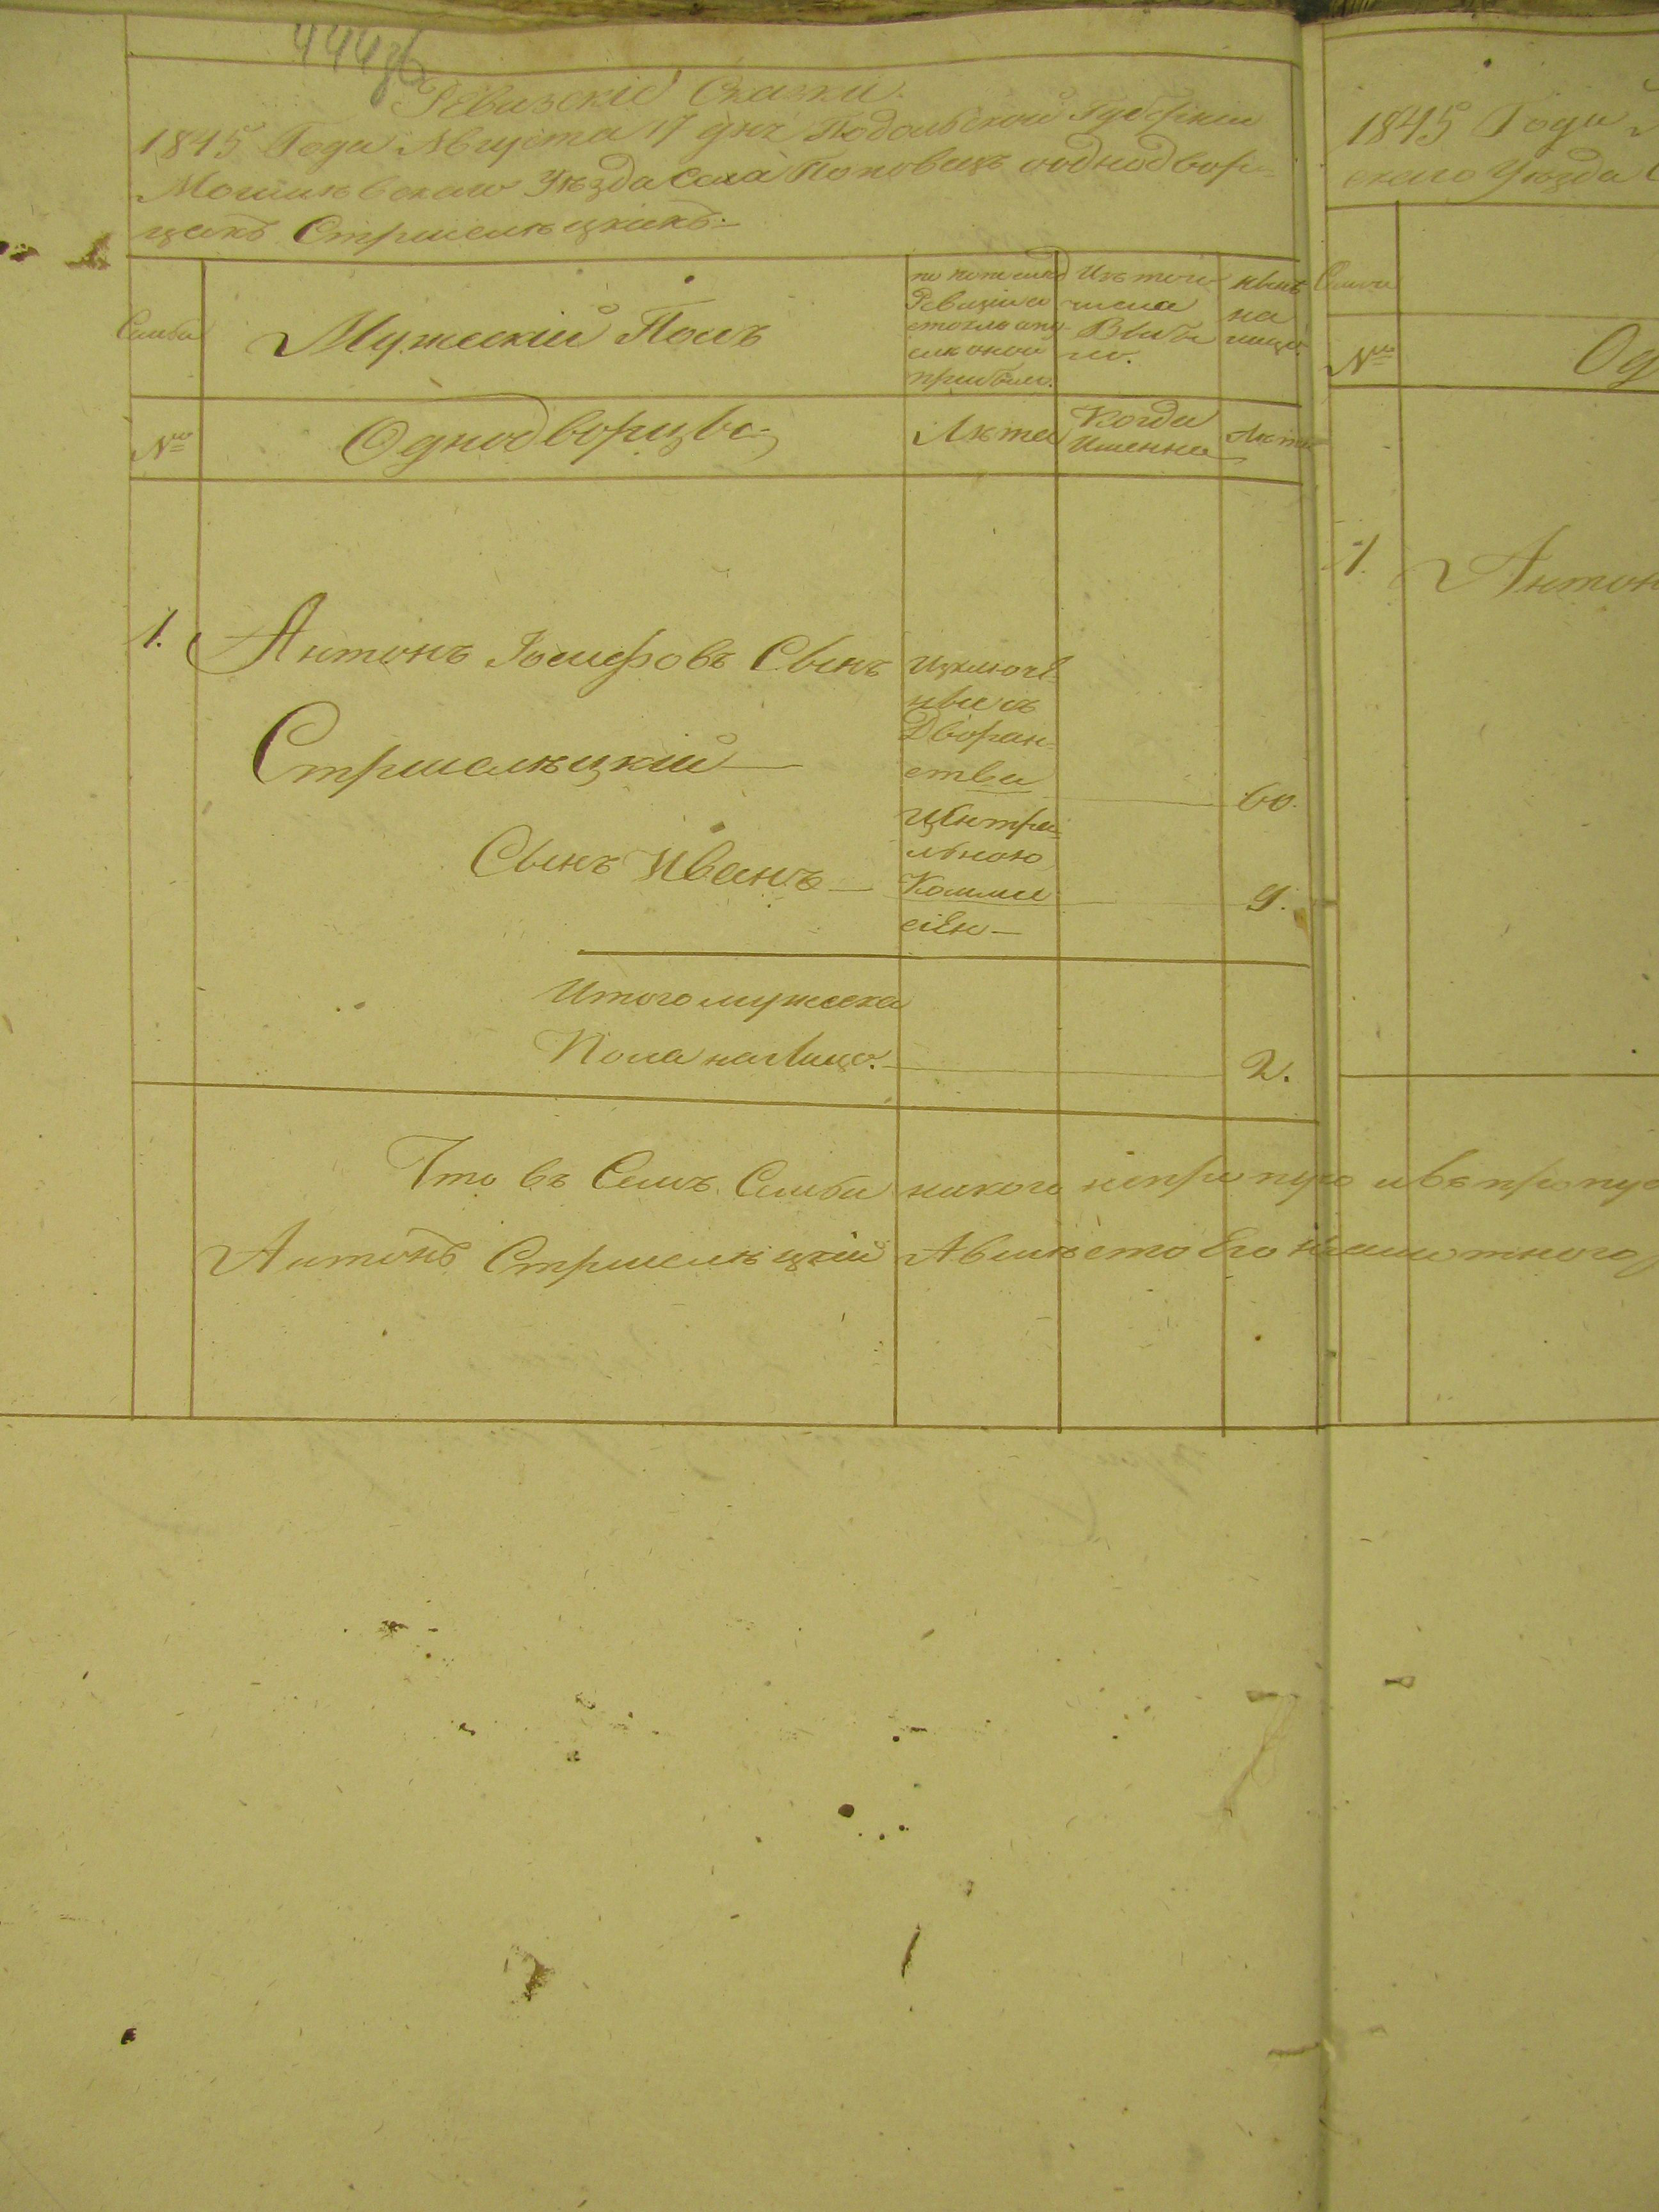 444об
Ревизскіе Сказки.
1845 Года Августа 17 дня Подольской Губерніи
Могилевскаго Уѣзда Села Поповецъ ооднодвор-
цахъ Стришелѣцкихъ.
Семьи
Мужескій Полъ
по последъ
Ревизіи со
стояло
после оной
прибыло.
Изъ того
числа
Выбы
ло.
нынѣ
на
лицо.
№
Однодворцы
Лѣта
Когда
Именно
Лѣта
1. Антонъ Іосифовъ Сынъ
Стришелѣцкій
60.
Сынъ Иванъ
9.
Изключе-
ные съ
Дворан-
ства
Центра-
льною
Комми
сіею
Итого мужеска
Пола на Лицо.
2.
Что въ Семъ Семьи никого непропу
Антонъ Стришелѣцкій Авмѣсто Его неграмотного
1845 Года
скаго Уѣзда
Семьи
№
Од
1. Антон